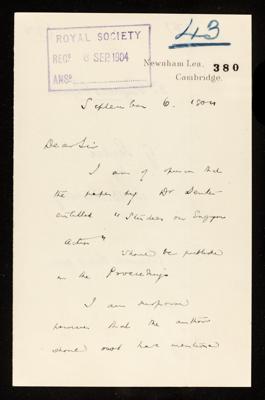 43
ROYAL SOCIETY
REC^D 8 SEP. 1904
ANS^D
Newnham Lea,
380
Cambridge.
September 6. 1904
Dear Sir
I am of opinion that
the paper by Dr Senter
entitled "Studies on Enzyme
Action"
should be published
in the Proceedings
I am
however that the author
should not have mentioned